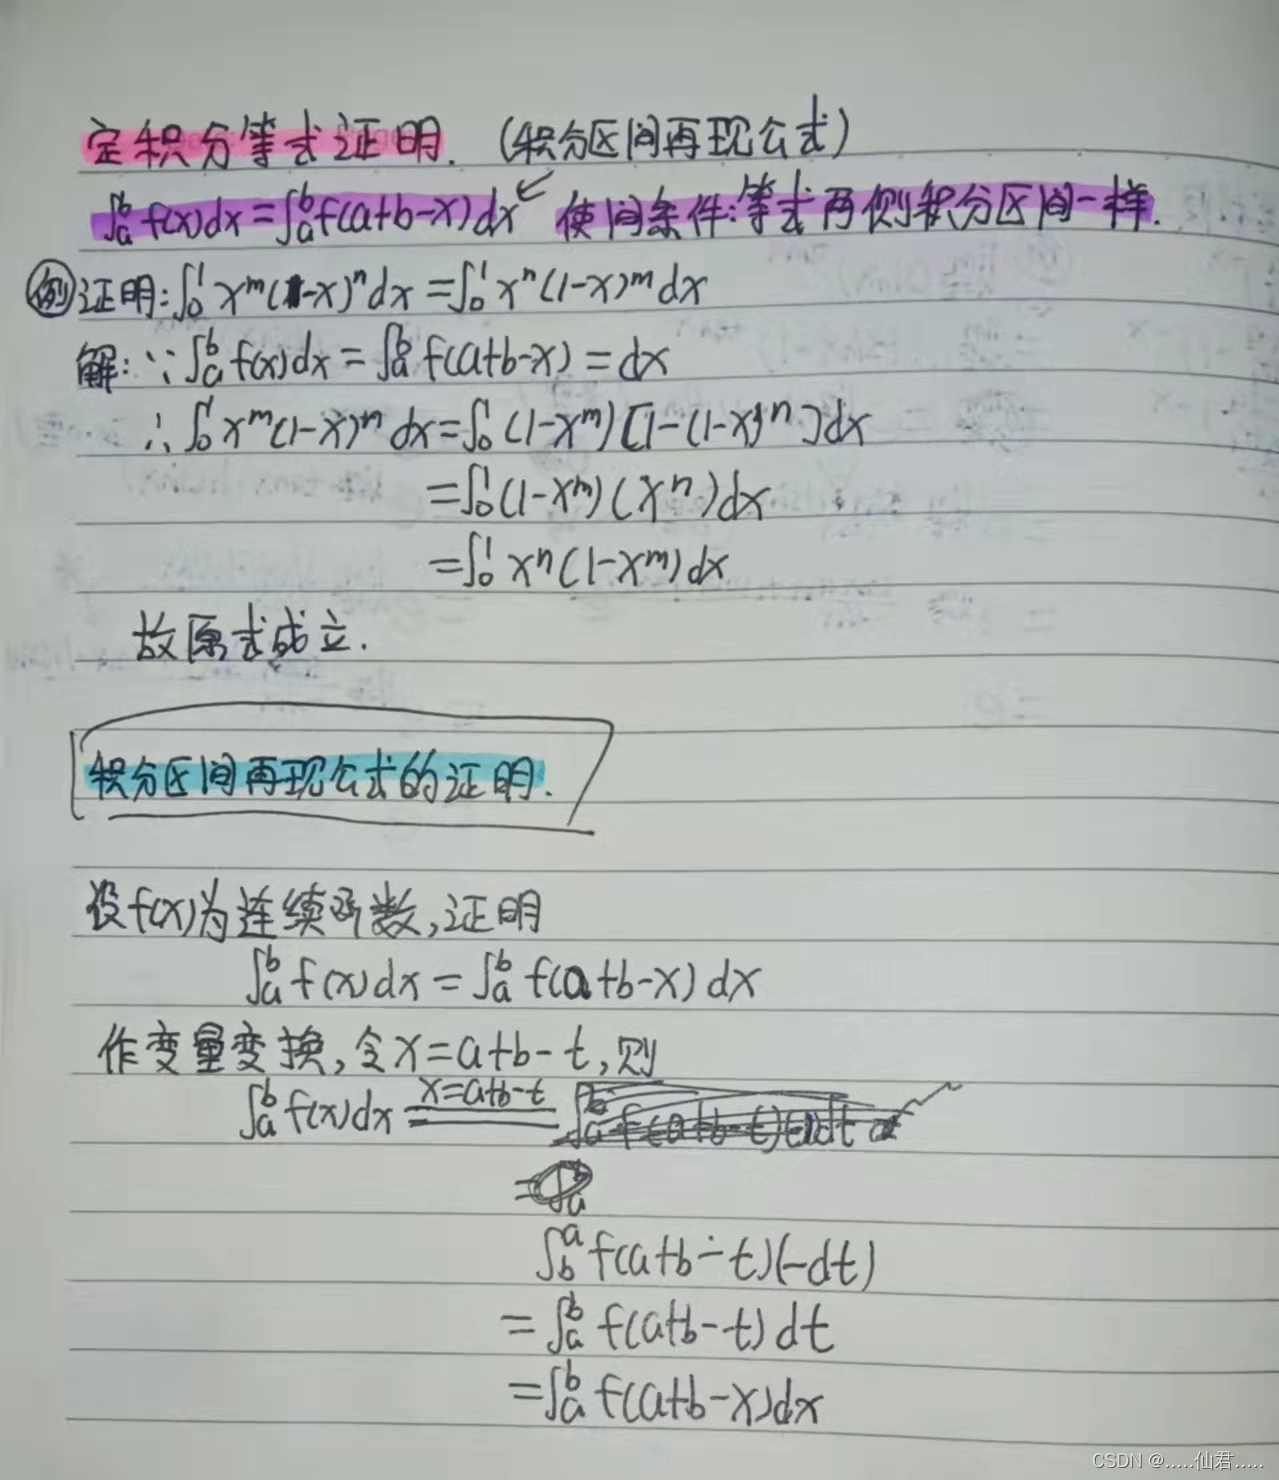 定积分等式证明. (积分区间再现公式)
∫ₐᵇ f(x)dx = ∫ₐᵇ f(a+b-x)dx 使间条件:等式两侧积分区间一样.
例 证明: ∫₀¹ xᵐ(1-x)ⁿdx = ∫₀¹ xⁿ(1-x)ᵐdx
解: ∵ ∫ₐᵇ f(x)dx = ∫ₐᵇ f(a+b-x) = dx
∴ ∫₀¹ xᵐ(1-x)ⁿ dx = ∫₀¹ (1-xᵐ)[1-(1-x)ⁿ]dx
= ∫₀¹ (1-xᵐ)(xⁿ)dx
= ∫₀¹ xⁿ(1-xᵐ)dx
故原式成立.
积分区间再现公式的证明.
设f(x)为连续函数,证明
∫ₐᵇ f(x)dx = ∫ₐᵇ f(a+b-x)dx
作变量变换,令x=a+b-t,则
∫ₐᵇ f(x)dx x=a+b-t =
=
∫ᵦᵃ f(a+b-t)(-dt)
= ∫ₐᵇ f(a+b-t)dt
= ∫ₐᵇ f(a+b-x)dx
CSDN @.....仙君.....